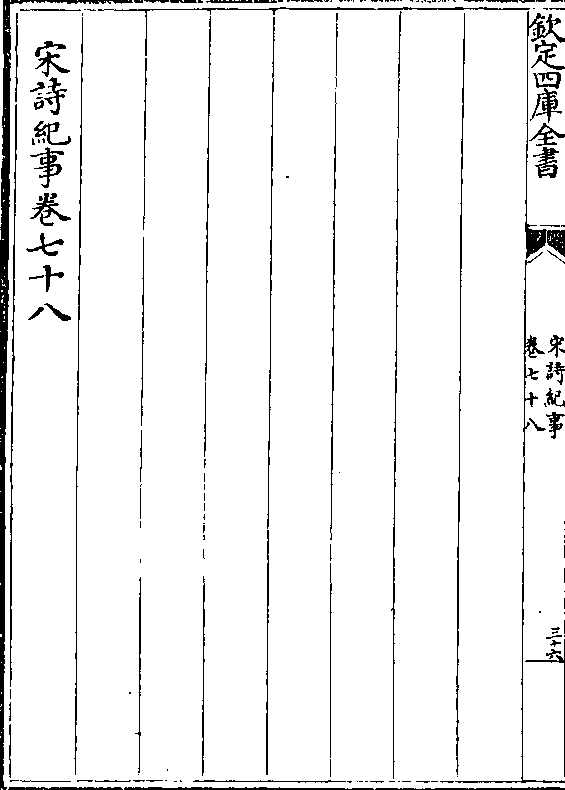 欽定四庫全書
宋詩紀事
卷七十八
三十六
宋詩紀事卷七十八